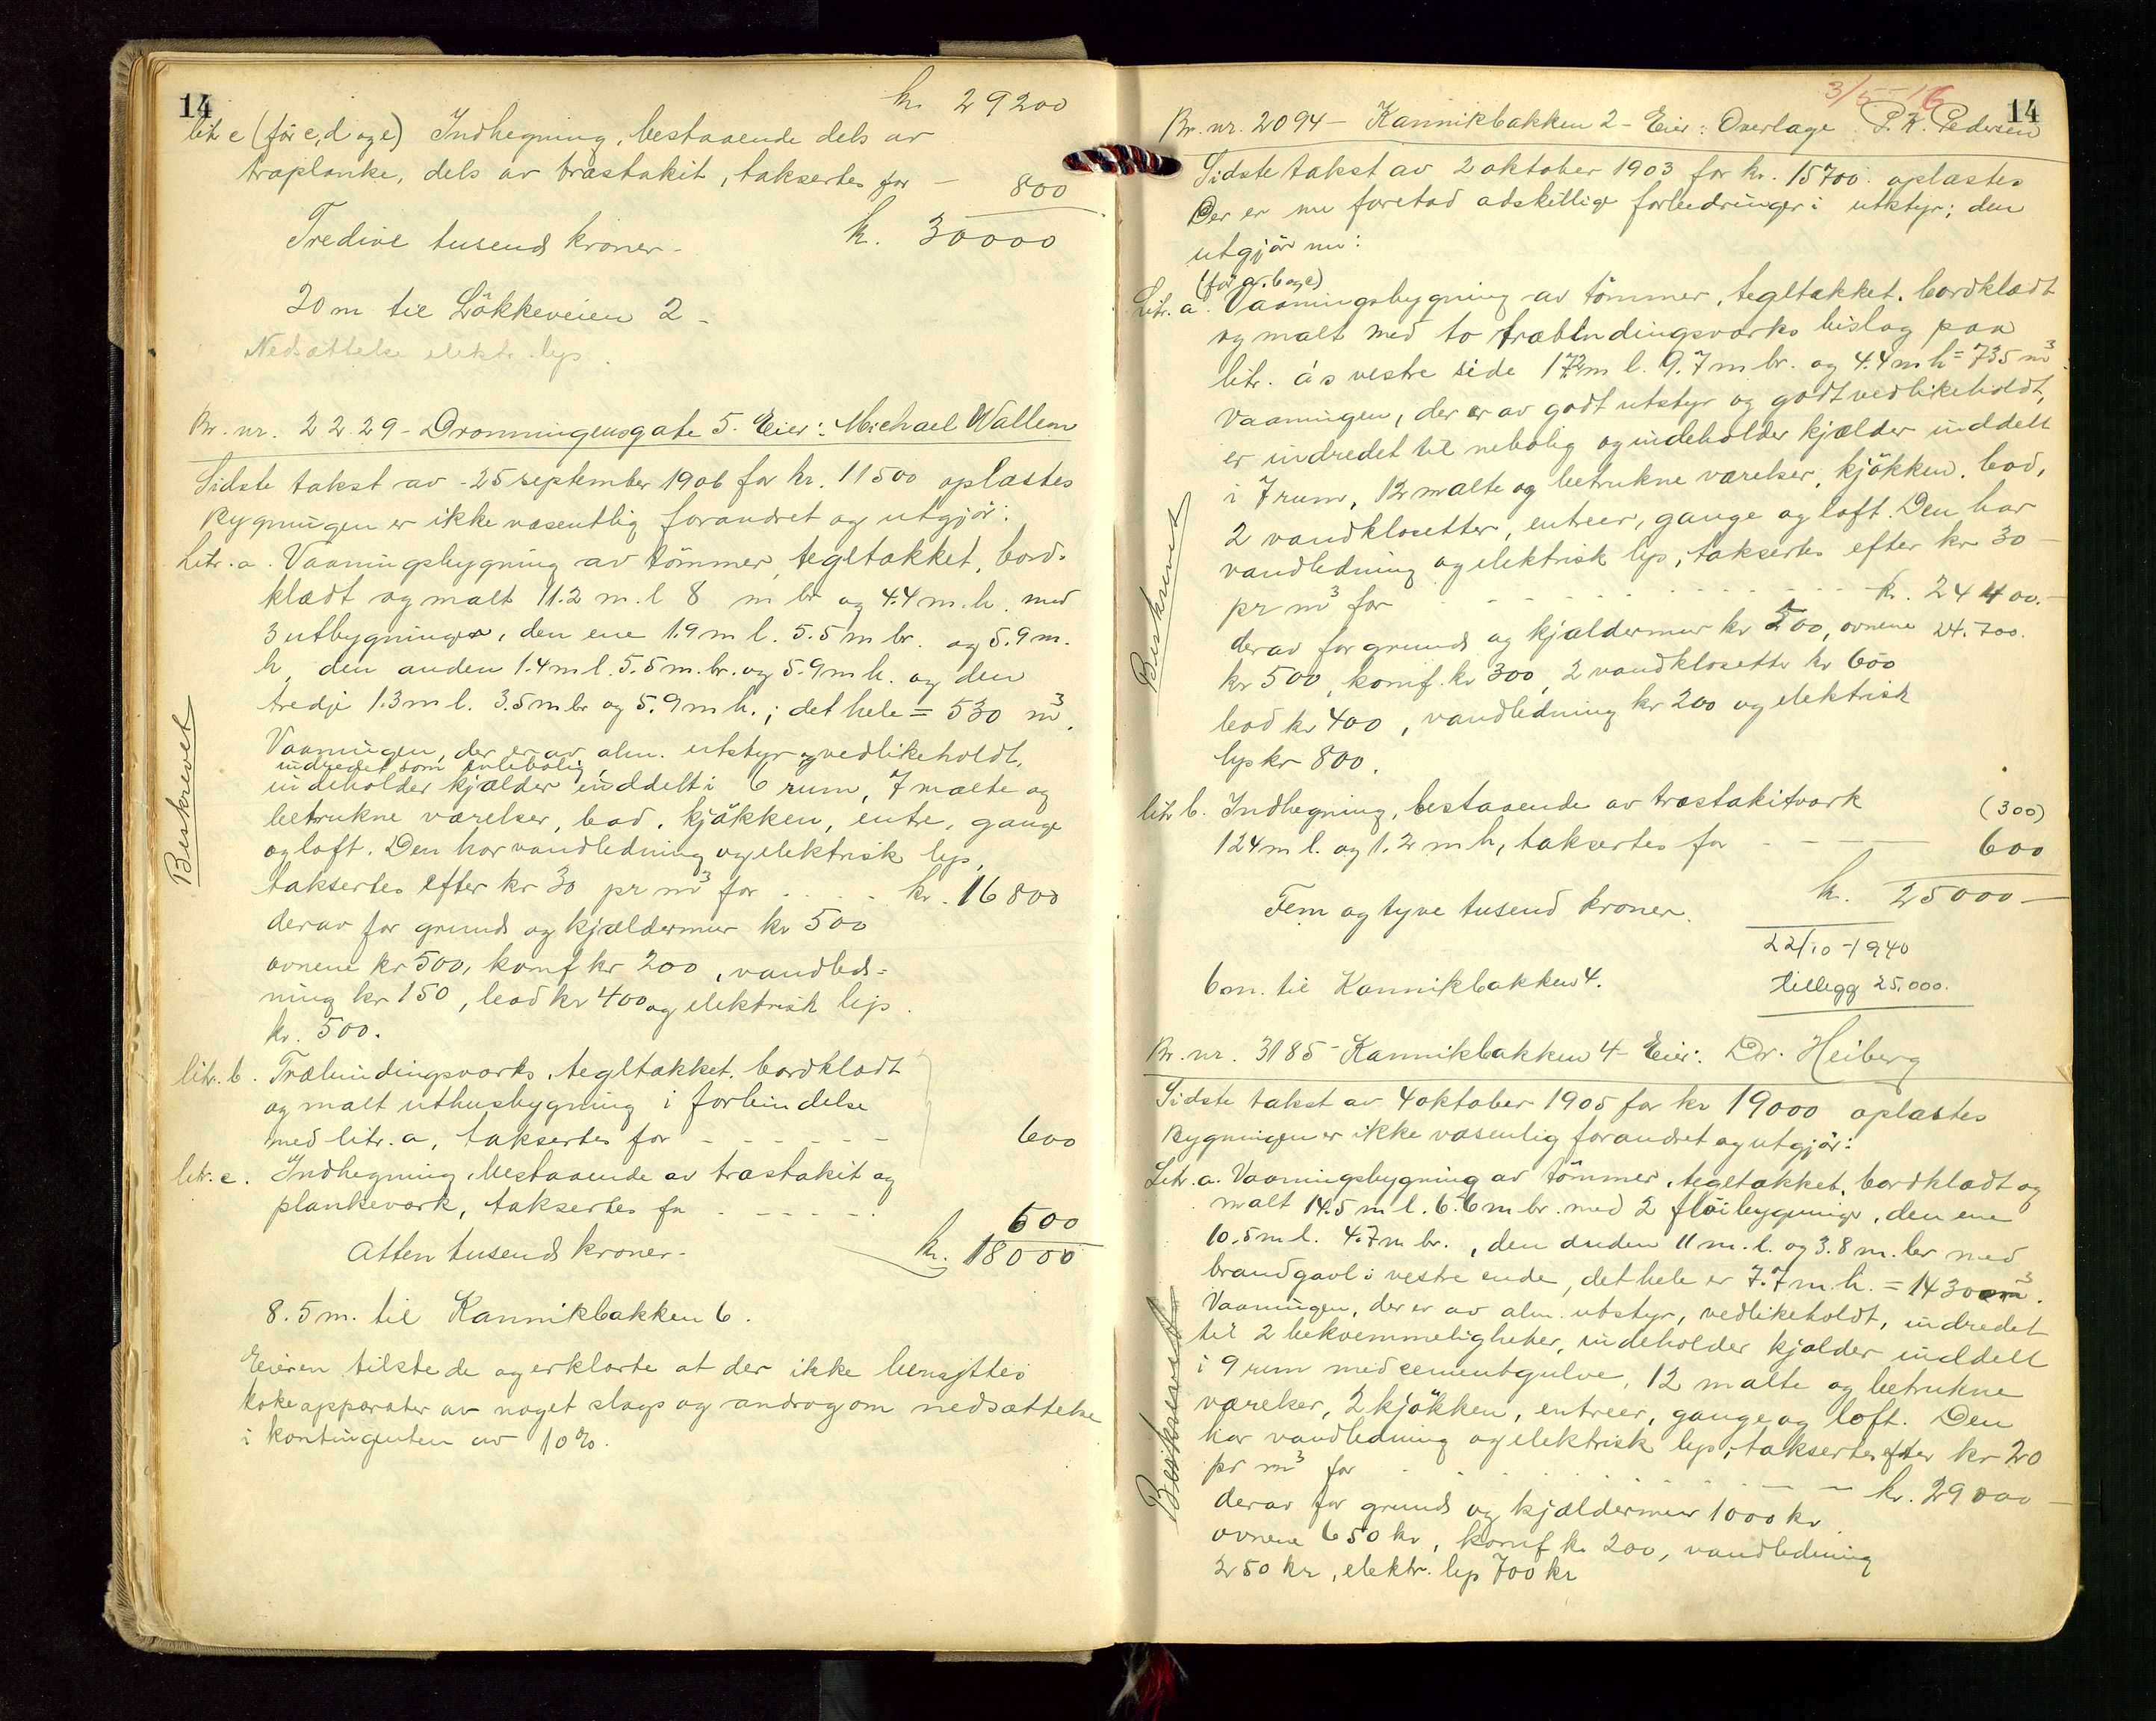 14
kr. 29200
litr. c (för c, d og e) Indhegning, bestaaende dels av
træplanke, dels av træstakit, taksertes for — 800
Tredive tusend kroner - kr. 30000
20 m til Lökkeveien 2 -
Nedsættelse elektr. lys.
Br. nr. 2229 - Dronningensgate 5. Eier: Michael Wallem
Sidste takst av 25 september 1906 for kr. 11500 oplæstes
Bygningen er ikke væsentlig forandret og utgjör:
Litr. a. Vaaningsbygning av tömmer, tegltækket, bord-
klædt og malt 11.2 m. l. 8 m br. og 4.4 m. h. med
3 utbygninger, den ene 1.9 m l. 5.5 m br. og 5.9 m.
h, den anden 1.4 m l. 5.5 m. br. og 5.9 m h. og den
tredje 1.3 m l. 3.5 m br og 5.9 m h.; det hele = 530 m³.
Vaaningen, der er av alm. utstyr og vedlikeholdt,
indredet som enebolig,
indeholder kjælder inddelt i 6 rum, 7 malte og
betrukne værelser, bad, kjökken, entre, gange
og loft. Den har vandledning og elektrisk lys,
taksertes efter kr 30 pr m³ for . . . . kr. 16800
derav for grund og kjældermur kr 500
ovnene kr 500, komf kr 200, vandled-
ning kr 150, bad kr 400 og elektrisk lys
kr. 500.
litr. b. Træbindingsværks, tegltækket, bordklædt
og malt uthusbygning i forbindelse
med litr. a, taksertes for - - - - - - 600
litr. c. Indhegning, bestaaende av træstakit og
plankeværk, taksertes for - - - - - 600
Atten tusend kroner - kr. 18000
8.5 m. til Kannikbakken 6.
Eieren tilstede og erklærte at der ikke benyttes
kokeapparater av noget slags og androg om nedsættelse
i kontingenten av 10%.
Beskrevet
3/5-16
14
Br. nr. 2094 - Kannikbakken 2 - Eier: Overlage P. K. Pedersen
Sidste takst av 2 oktober 1903 for kr. 15700 oplæstes
Der er nu foretad adskillige forbedringer i utstyr; den
utgjör nu:
(för a, b og c)
Litr. a. Vaaningsbygning av tömmer, tegltækket, bordklædt
og malt med to træbindingsværks bislag paa
litr. a's vestre side 17.2 m l. 9.7 m br. og 4.4 m h = 735 m³.
Vaaningen, der er av godt utstyr og godt vedlikeholdt,
er indredet til enebolig og indeholder kjælder inddelt
i 7 rum, 12 malte og betrukne værelser, kjökken, bad,
2 vandklosetter, entreer, gange og loft. Den har
vandledning og elektrisk lys, taksertes efter kr 30 -
pr m³ for - - - - - - kr. 24400.-
derav for grund og kjældermur kr 500, ovnene 24.700.
kr 500, komf. kr 300, 2 vandklosetter kr 600
bad kr 400, vandledning kr 200 og elektrisk
lys kr 800.
litr b. Indhegning, bestaaende av træstakitværk (300)
124 m l. og 1.2 m h, taksertes for - - - 600
kr. 25000 -
Fem og tyve tusend kroner.
22/10-1940
6 m. til Kannikbakken 4.
tillegg 25.000.
Br. nr. 3185 - Kannikbakken 4 - Eier: Dr. Heiberg
Sidste takst av 4 oktober 1905 for kr 19000 oplæstes
Bygningen er ikke væsenlig forandret og utgjör:
Litr. a. Vaaningsbygning av tömmer, tegltækket, bordklædt og
malt 14.5 m l. 6.6 m br. med 2 flöibygninger, den ene
10.5 m l. 4.7 m br., den anden 11 m. l. og 3.8 m. br med
brandgavl i vestre ende, det hele er 7.7 m. h. = 1430 m³.
Vaaningen, der er av alm. utstyr, vedlikeholdt, indredet
til 2 bekvemmeligheter, indeholder kjælder inddelt
i 9 rum med cementgulve, 12 malte og betrukne
værelser, 2 kjökken, entreer, gange og loft. Den
har vandledning og elektrisk lys; taksertes efter kr 20
pr m³ for - - - - - - kr. 29000 -
derav for grund og kjældermur 1000 kr.
ovnene 650 kr, komf kr 200, vandledning
250 kr, elektr. lys 700 kr
Beskrevet
Beskrevet